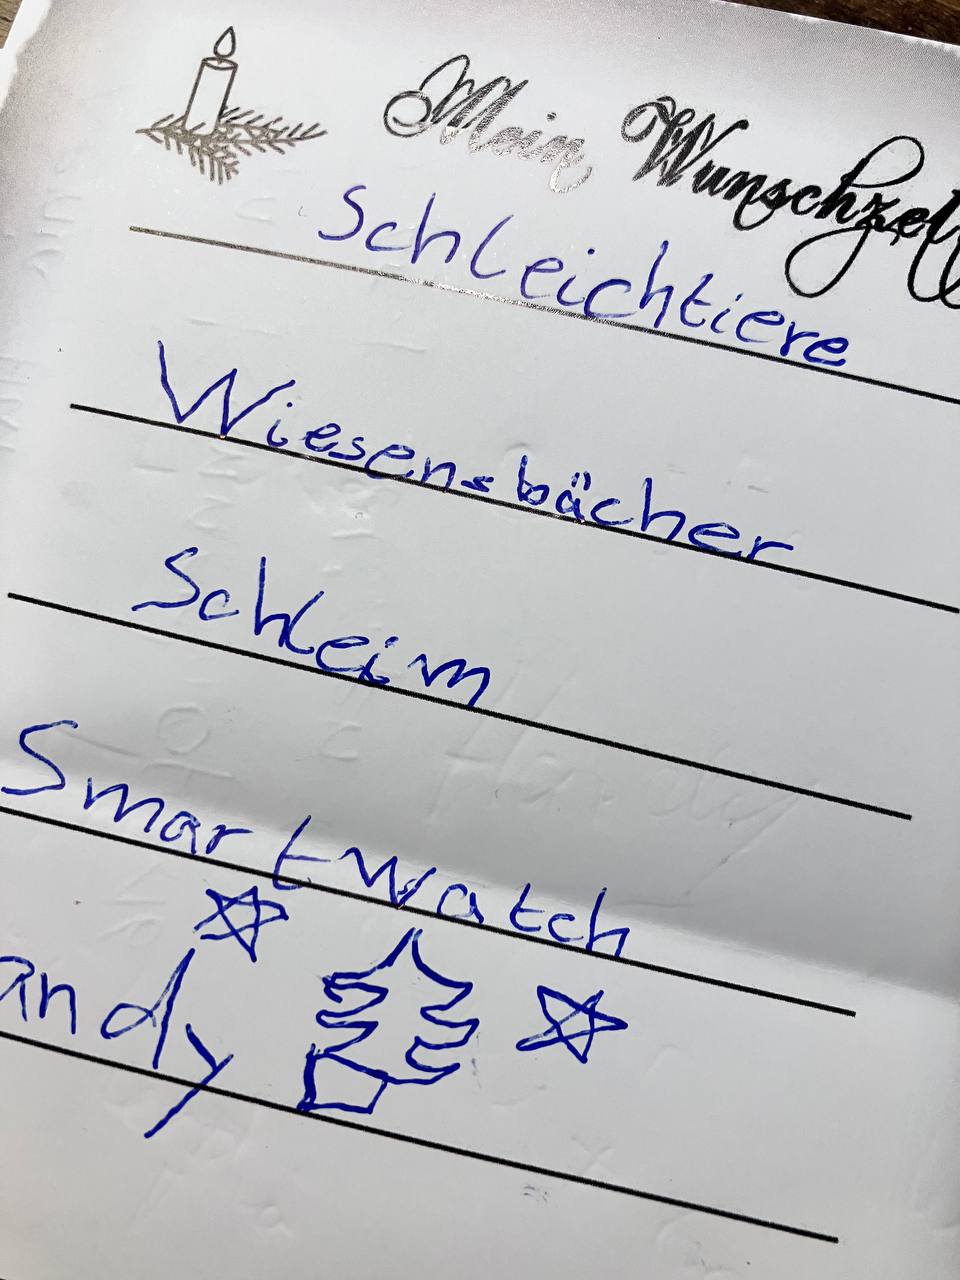 Mein Wunschzett
Schleichtiere
Wiesensbächer
Schleim
Smartwatch
andy